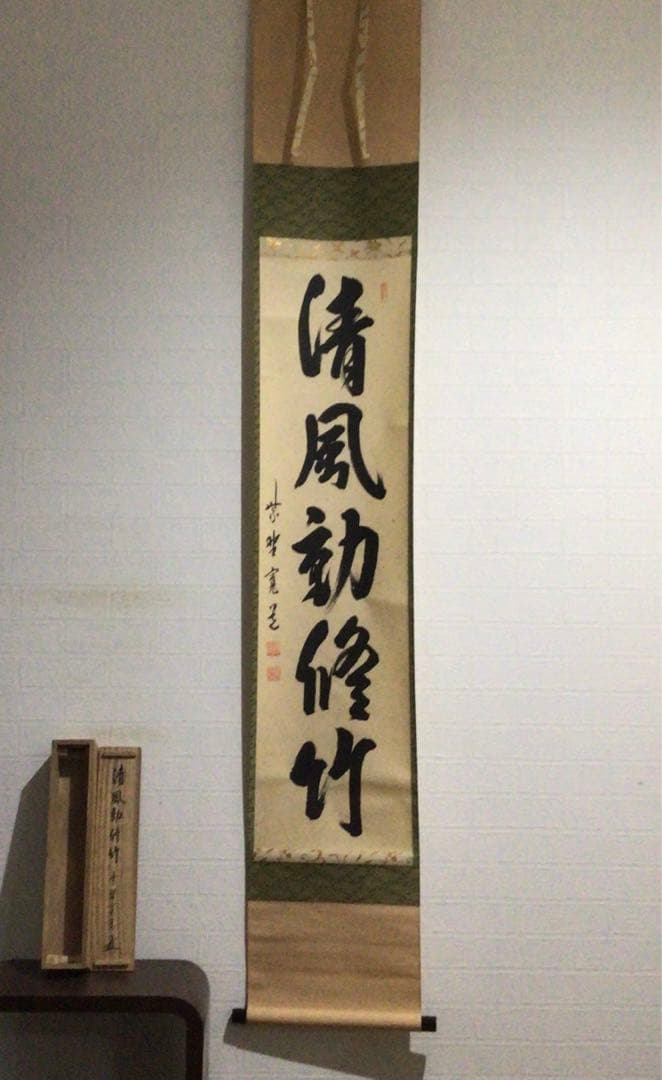 清風動修竹
紫野寛道
清風動修竹